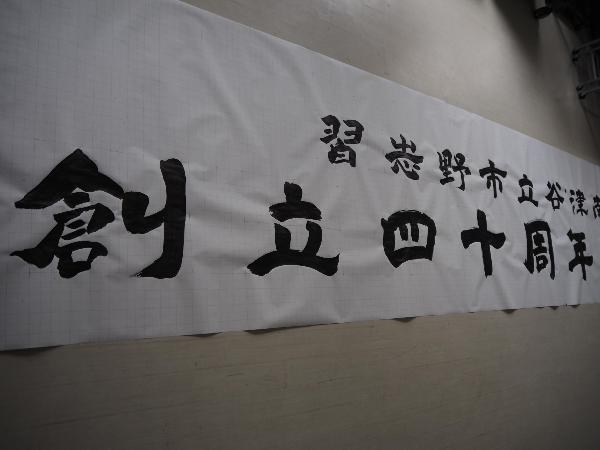 習志野市立谷津南
創立四十周年